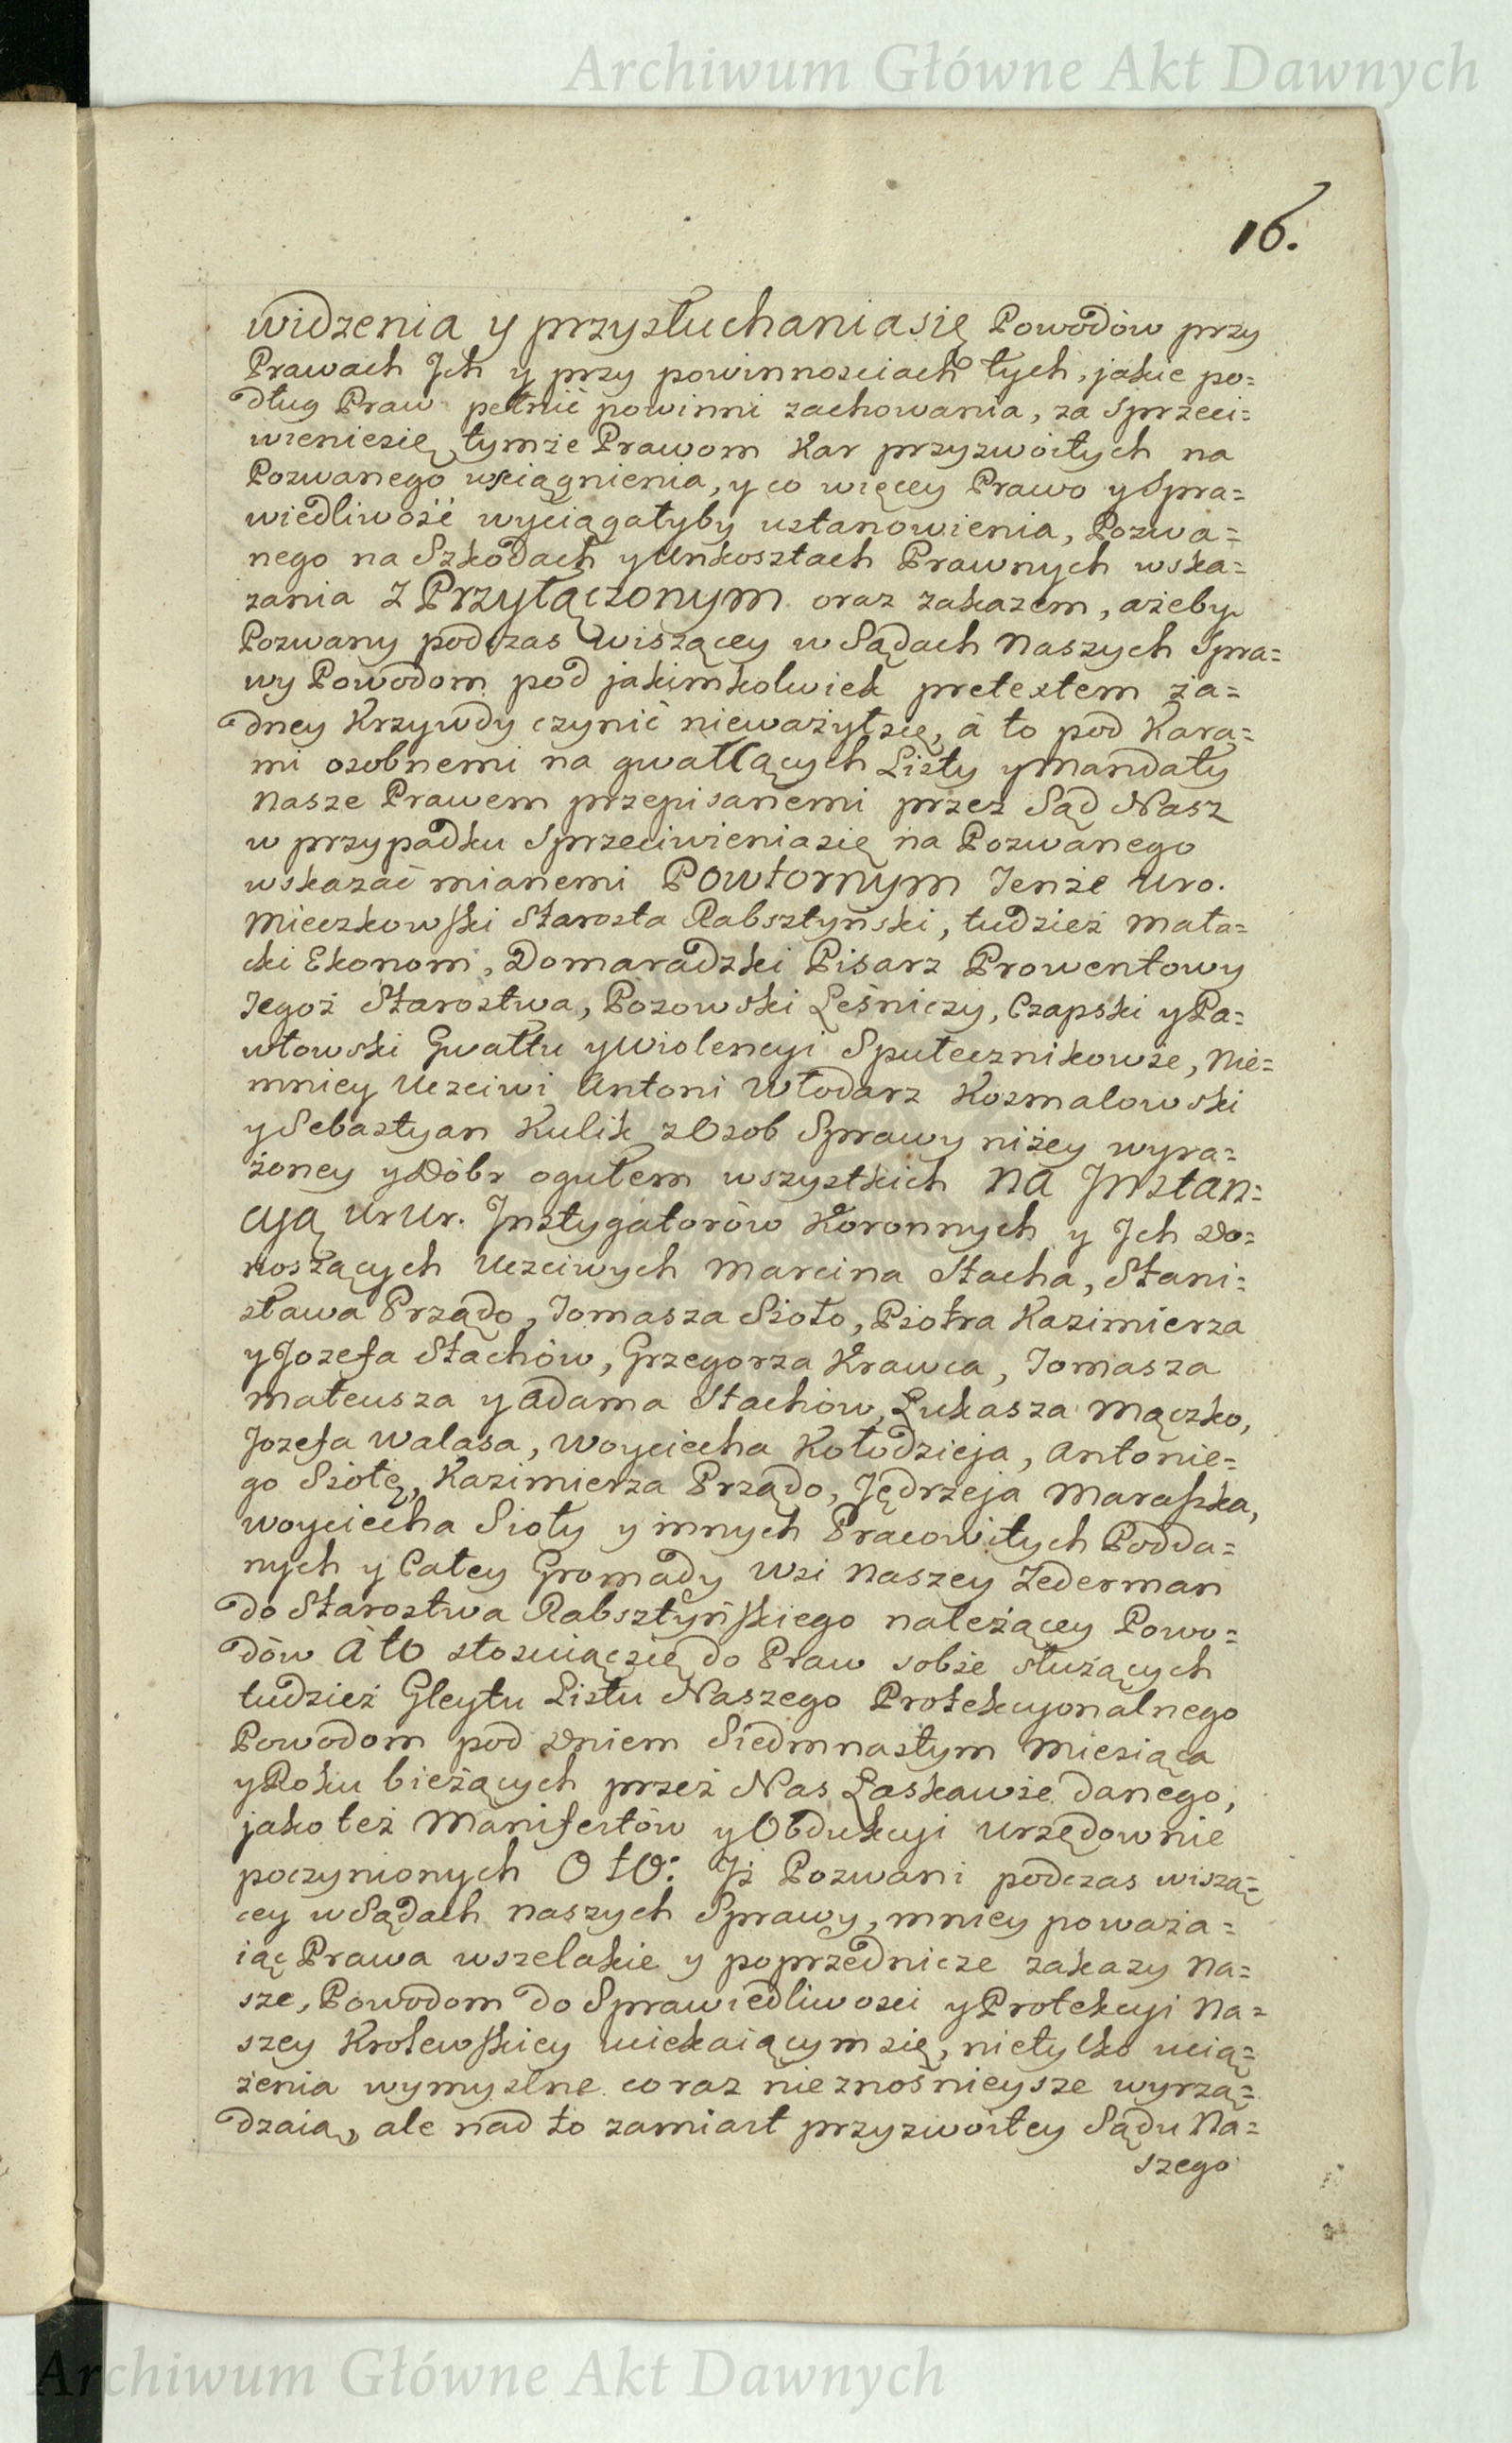 Archiwum Główne Akt Dawnych
16.
widzenia y przysłuchania się Powodów przy
Prawach Jch y przy powinnosciach tych, jakie po=
dług Praw pełnić powinni zachowania, za Sprzeci=
wieniesię tymże Prawom Kar przyzwoitych na
Pozwanego wsciągnienia, y co więcey Prawo y Spra=
wiedliwość wyciągałyby ustanowienia, Pozwa=
nego na Szkodach y Unkosztach Prawnych wska=
zania Z Przyłączonym oraz zakazem, ażeby
Pozwany podczas wiszącey w Sądach Naszych Spra=
wy Powodom pod jakimkolwiek pretextem ża=
dney Krzywdy czynić nieważyłsię, á to pod Kara=
mi osobnemi na gwałcących Listy y Mandaty
Nasze Prawem przepisanemi przez Sąd Nasz
w przypadku Sprzeciwieniasię na Pozwanego
wskazać mianemi Powtornym Jenże Uro.
Mieczkowski Starosta Rabsztyński, tudzież Mała=
cki Ekonom, Domaradzki Pisarz Prowentowy
Jegoż Starostwa, Pozowski Leśniczy, Czapski y Pa=
włowski Gwałtu y Wiolencyi Społecznikowie, Nie=
mniey Uczciwi Antoni Włodarz Kozmalowski
y Sebastyan Kulik z Osob Sprawy niżey wyra=
żoney y Dóbr ogułem wszystkich Na Jnstan=
cyą Ur Ur. Jnstygatorów Koronnych y Jch Do=
noszących Uczciwych Marcina Stacha, Stani=
sława Prządo, Tomasza Sioło, Piotra Kazimierza
y Jozefa Stachów, Grzegorza Krawca, Tomasza
Mateusza y Adama Stachów, Łukasza Mączko,
Jozefa Walasa, Woyciecha Kołodzieja, Antonie=
go Siołę, Kazimierza Prządo, Jędrzeja Maraszka,
Woyciecha Sioły y innych Pracowitych Podda=
nych y Całey Gromady Wsi Naszey Zederman
do Starostwa Rabsztyńskiego należącey Powo=
dów A to stosuiącsię do Praw sobie służących
tudzież Gleytu Listu Naszego Protekcyonalnego
Powodom pod Dniem Siedmnastym Miesiąca
y Roku bieżących przez Nas Łaskawie danego,
jako też Manifestów y Obdukcyi Urzędownie
poczynionych O to: Jż Pozwani podczas wiszą=
cey w Sądach naszych Sprawy, mniey poważa=
iąc Prawa wszelakie y poprzednicze zakazy Na=
sze, Powodom do Sprawiedliwosci y Protekcyi Na=
szey Krolewskiey uciekaiącymsię, nietylko ucią=
żenia wymyslne coraz nieznośnieysze wyrzą=
dzaią, ale nad to zamiast przyzwoitey Sądu Na=
szego
Archiwum Główne Akt Dawnych